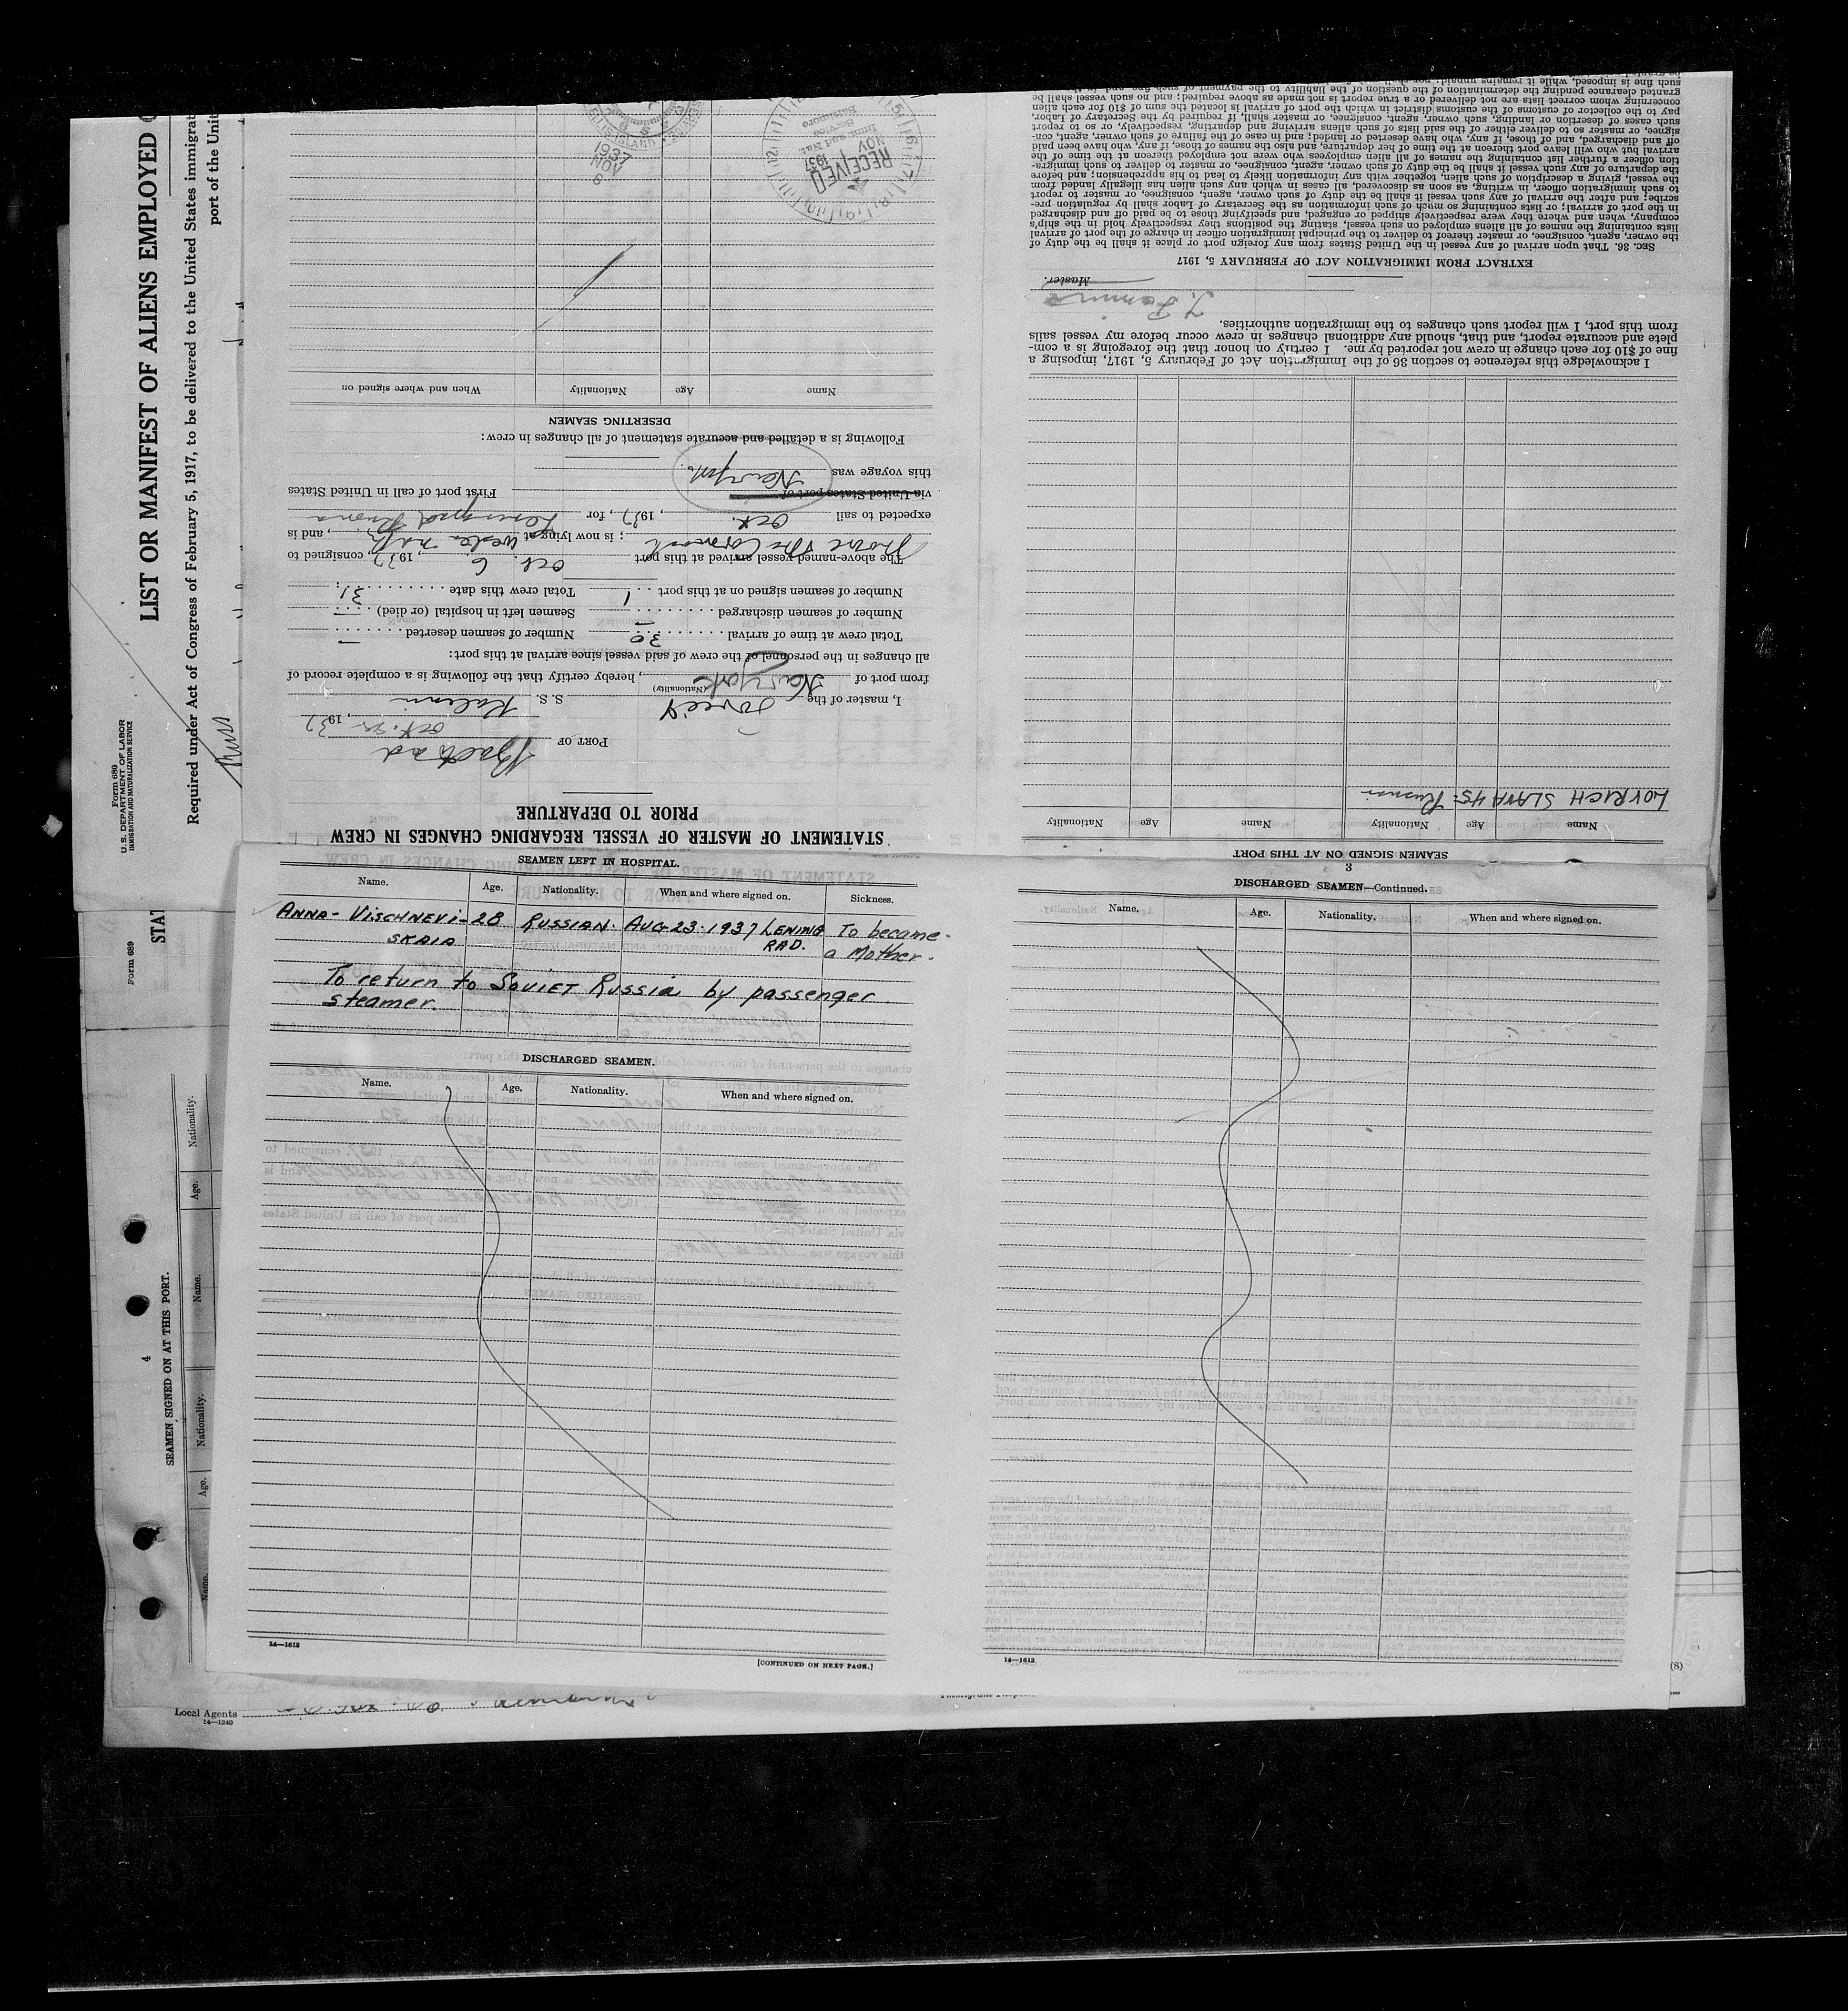 Form 680
U. S. DEPARTMENT OF LABOR
IMMIGRATION AND NATURALIZATION SERVICE
LIST OR MANIFEST OF ALIENS EMPLOYED
Required under Act of Congress of February 5, 1917, to be delivered to the United States immigrat
port of the Unit
STATEMENT OF MASTER OF VESSEL REGARDING CHANGES IN CREW
PRIOR TO DEPARTURE
PORT OF
, 1937
I, master of the Soviet S. S. Kalinin
(Nationality)
from port of New York, hereby certify that the following is a complete record of
all changes in the personnel of the crew of said vessel since arrival at this port:
Total crew at time of arrival 30 Number of seamen deserted —
Number of seamen discharged — Seamen left in hospital (or died) —
Number of seamen signed on at this port 1 Total crew this date 31
The above-named vessel arrived at this port Oct. 6, 1937, consigned to
Moore & McCormack; is now lying at, and is
expected to sail Oct., 1937, for Leningrad Russia
via United States port of First port of call in United States
this voyage was New York.
Following is a detailed and accurate statement of all changes in crew:
DESERTING SEAMEN
Name Age Nationality When and where signed on
RECEIVED
NOV
1937
Immig. and Nat.
Service
Baltimore
ELLIS ISLAND
1937
NOV
6
3
SEAMEN SIGNED ON AT THIS PORT
Name Age Nationality Name Age Nationality
LOVRICH SLAVA 45 Russia
I acknowledge this reference to section 36 of the Immigration Act of February 5, 1917, imposing a
fine of $10 for each change in crew not reported by me. I certify on honor that the foregoing is a com-
plete and accurate report, and that, should any additional changes in crew occur before my vessel sails
from this port, I will report such changes to the immigration authorities.
Master.
EXTRACT FROM IMMIGRATION ACT OF FEBRUARY 5, 1917
SEC. 36. That upon arrival of any vessel in the United States from any foreign port or place it shall be the duty of
the owner, agent, consignee, or master thereof to deliver to the principal immigration officer in charge of the port of arrival
lists containing the names of all aliens employed on such vessel, stating the positions they respectively hold in the ship's
company, when and where they were respectively shipped or engaged, and specifying those to be paid off and discharged
in the port of arrival; or lists containing so much of such information as the Secretary of Labor shall by regulation pre-
scribe; and after the arrival of any such vessel it shall be the duty of such owner, agent, consignee, or master to report
to such immigration officer, in writing, as soon as discovered, all cases in which any such alien has illegally landed from
the vessel, giving a description of such alien, together with any information likely to lead to his apprehension; and before
the departure of any such vessel it shall be the duty of such owner, agent, consignee, or master to deliver to such immigra-
tion officer a further list containing the names of all alien employees who were not employed thereon at the time of the
arrival but who will leave port thereon at the time of her departure, and also the names of those, if any, who have been paid
off and discharged, and of those, if any, who have deserted or landed; and in case of the failure of such owner, agent, con-
signee, or master so to deliver either of the said lists of such aliens arriving and departing, respectively, or so to report
such cases of desertion or landing, such owner, agent, consignee, or master shall, if required by the Secretary of Labor,
pay to the collector of customs of the customs district in which the port of arrival is located the sum of $10 for each alien
concerning whom correct lists are not delivered or a true report is not made as above required; and no such vessel shall be
granted clearance pending the determination of the question of the liability to the payment of such fine
such fine is imposed, while it remains unpaid;
SEAMEN LEFT IN HOSPITAL.
Name. Age. Nationality. When and where signed on. Sickness.
ANNA- VISCHNEVI- 28 RUSSIAN. AUG-23-1937 LENING To became
SKAIA RAD. a Mother.
To return to SOVIET RUSSIA by passenger
steamer.
DISCHARGED SEAMEN.
Name. Age. Nationality. When and where signed on.
14—1612
[CONTINUED ON NEXT PAGE.]
DISCHARGED SEAMEN—Continued.
Name. Age. Nationality. When and where signed on.
14—1612
Form 689
STAT
4
SEAMEN SIGNED ON AT THIS PORT.
Name. Age. Nationality. Name. Age. Nationality.
(8)
Local Agents
14—1240